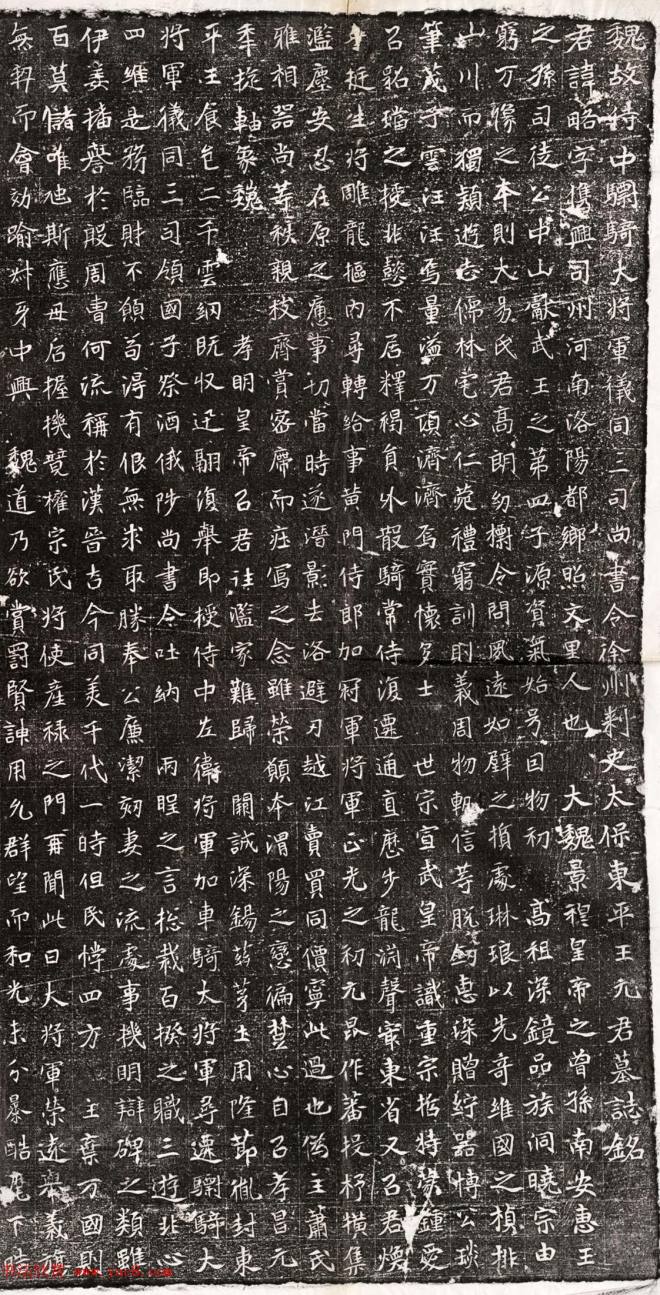 魏故侍中驃騎大將軍儀同三司尚書令徐州刾史太保東平王元君墓誌銘
君諱略字儁興司州河南洛陽都鄉照文里人也　大魏景穆皇帝之曾孫南安惠王
之孫司徒公中山獻武王之第四子源資氣始号因物初　高祖深鏡品族洞曉宗由
窮万㒹之本則大易氏君高朗幼標令問夙遠如璧之損處琳琅以先奇維國之楨排
山川而獨頴遊志儒林宅心仁苑禮窮訓則義周物軌信等脫劒惠深贈紵器博公琰
筆茂子雲汪汪焉量溢万頃濟濟焉實懷多士　世宗宣武皇帝識重宗哲特蒙鍾愛
召貂璫之授非懿不居釋褐員外散騎常侍復遷通直歷步龍淵聲宷東省又召君
挺生將雕龍樞內尋轉給事黃門侍郎加冠軍將軍正光之初元昆作蕃投杼橫集
濫塵安忍在原之應事切當時遂潛影去洛避刃越江賣買同價寧此過也偽主蕭氏
雅相器尚等秩親枝齊賞密席而庄寫之念雖榮願本渭陽之戀偏楚心自召孝昌元
季旋軸象魏　孝明皇帝召君往濫家難歸　闕誠深錫茲茅土用隆節㣧封東
平王食邑二千室綱既收迅翮復舉即授侍中左衛將軍加車騎大將軍尋遷驃騎大
將軍儀同三司領國子祭酒俄陟尚書令吐納　兩睲之言揔裁百揆之職二遊非心
四維是務臨財不顧苟淂有佷無求取勝奉公廉潔刻妻之流處事機明辯碑之類雖
伊姜播譽於殷周曺何流稱於漢晉古今同美千代一時但民悖四方　主棄万國則
百莫儲唯虵斯應母后握機競權宗氏將使產祿之門再聞此日大將軍榮遠舉義旗
無契而會効踰叶牙中興　魏道乃欲賞罰賢諌用允群望而和光未分暴酷麾下